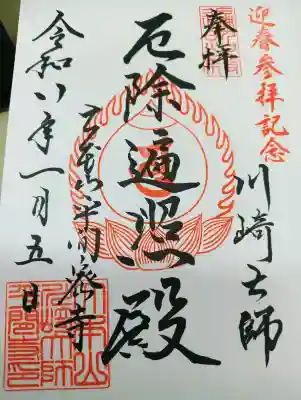 迎春参拝記念
奉拝
川崎大師
厄除遍照殿
平間寺
令和八年一月五日